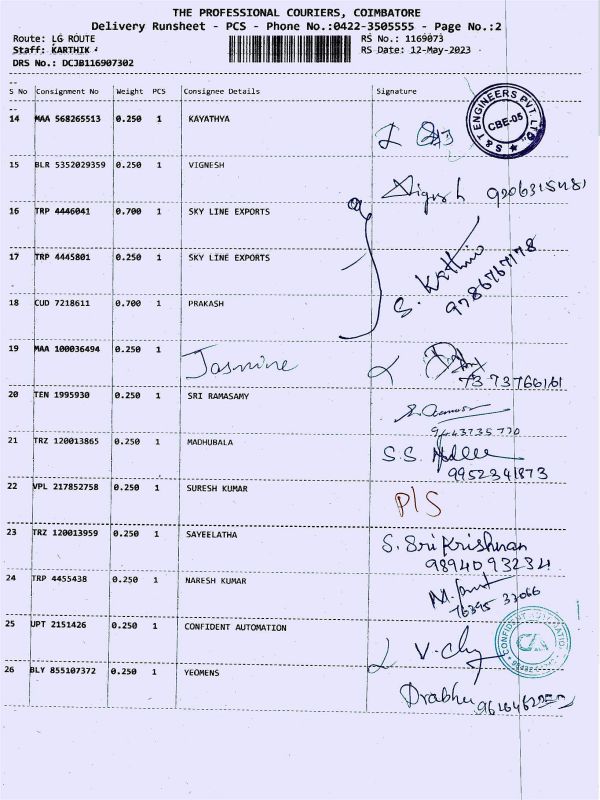 THE PROFESSIONAL COURIERS, COIMBATORE
Delivery Runsheet - PCS - Phone No.:0422-3505555 - Page No.:2
Route: LG ROUTE RS No.: 1169073
Staff: KARTHIK RS Date: 12-May-2023
DRS No.: DCJB116907302
S No Consignment No Weight PCS Consignee Details Signature
14 MAA 568265513 0.250 1 KAYATHYA
S & T ENGINEERS PVT LTD CBE-05
15 BLR 5352029359 0.250 1 VIGNESH
Vignesh
16 TRP 4446041 0.700 1 SKY LINE EXPORTS
17 TRP 4445801 0.250 1 SKY LINE EXPORTS
S. Karthi
9786767178
18 CUD 7218611 0.700 1 PRAKASH
19 MAA 100036494 0.250 1 Jasmine
73 73766161
20 TEN 1995930 0.250 1 SRI RAMASAMY
9443735770
21 TRZ 120013865 0.250 1 MADHUBALA S.S.
9952341873
22 VPL 217852758 0.250 1 SURESH KUMAR P/S
23 TRZ 120013959 0.250 1 SAYEELATHA S. Sri Krishnan
9894093234
24 TRP 4455438 0.250 1 NARESH KUMAR
76395 33066
25 UPT 2151426 0.250 1 CONFIDENT AUTOMATION
CONFIDENT CA
26 BLY 855107372 0.250 1 YEOMENS Prabhu